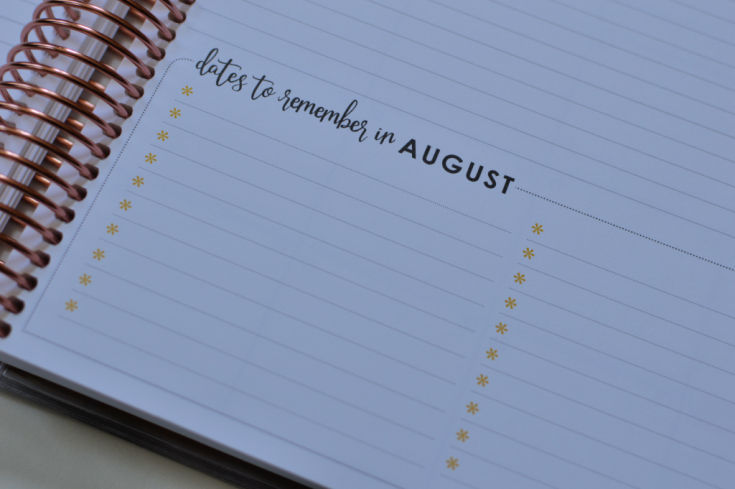 dates to remember in AUGUST